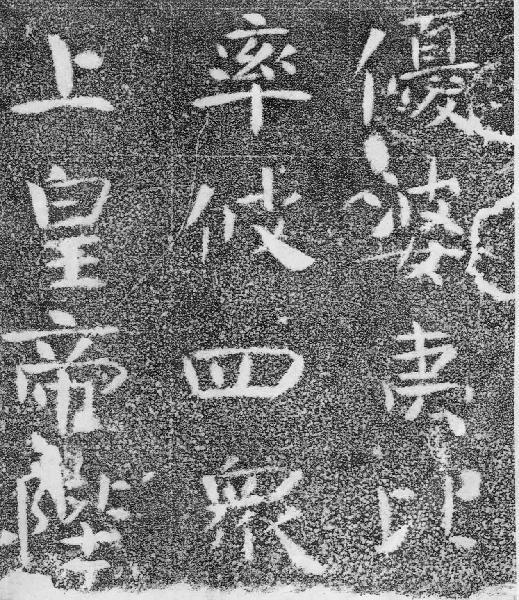 優婆夷比
率彼四衆
上皇帝陛